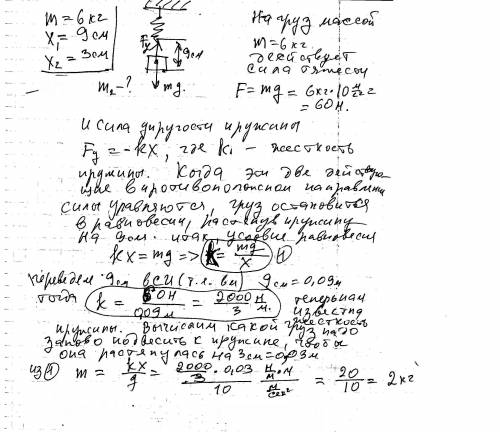 m = 6 кг
x₁ = 9 см
x₂ = 3 см
m₂ - ?
Fу
9 см
mg
На груз массой
m = 6 кг
действует
сила тяжести
F = mg = 6 кг · 10 м/с²
= 60 Н.
И сила упругости пружины
Fу = -kx, где k - жесткость
пружины. Когда эти две действую
щие в противоположном направлении
силы уравняются, груз остановится
в равновесии, растянув пружину
на 9 см. итак, условие равновесия
kx = mg => k = mg/x (1)
переведем 9 см в СИ (т.е. в м) 9 см = 0,09 м
тогда k = 60Н/0,09м = 2000/3 Н/м. теперь нам
известна жесткость
пружины. Вычислим какой груз надо
заново подвесить к пружине, чтобы
она растянулась на 3 см = 0,03 м
из (1) m = kx/g = (2000/3 · 0,03 Н/м · м)/(10 м/сек²) = 20/10 = 2 кг